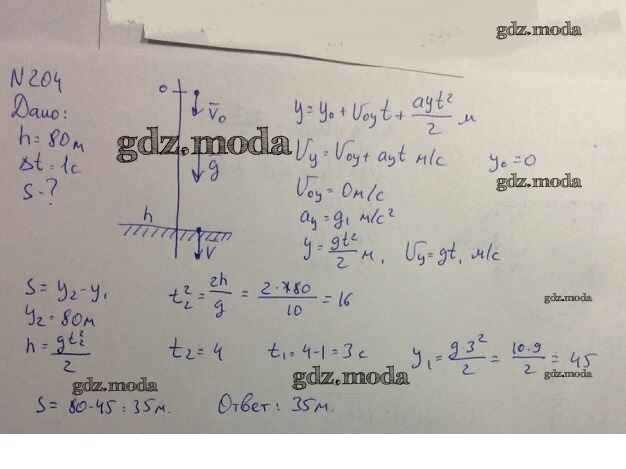 gdz.moda
N204
Дано:
h = 80м
Δt = 1с
S - ?
0
v̄₀
g
h
V
gdz.moda
y = y₀ + v₀yt + ayt²/2 м
vy = v₀y + ayt м/с y₀ = 0
gdz.moda
v₀y = 0м/с
ay = g, м/с²
y = gt²/2 м, vy = gt, м/с
S = y₂ - y₁
y₂ = 80м
h = gt₂²/2
t₂² = 2h/g = 2·80/10 = 16
gdz.moda
t₂ = 4 t₁ = 4-1 = 3с y₁ = g·3²/2 = 10·9/2 = 45
gdz.moda
gdz.moda
gdz.moda
S = 80-45 = 35м. Ответ: 35м.